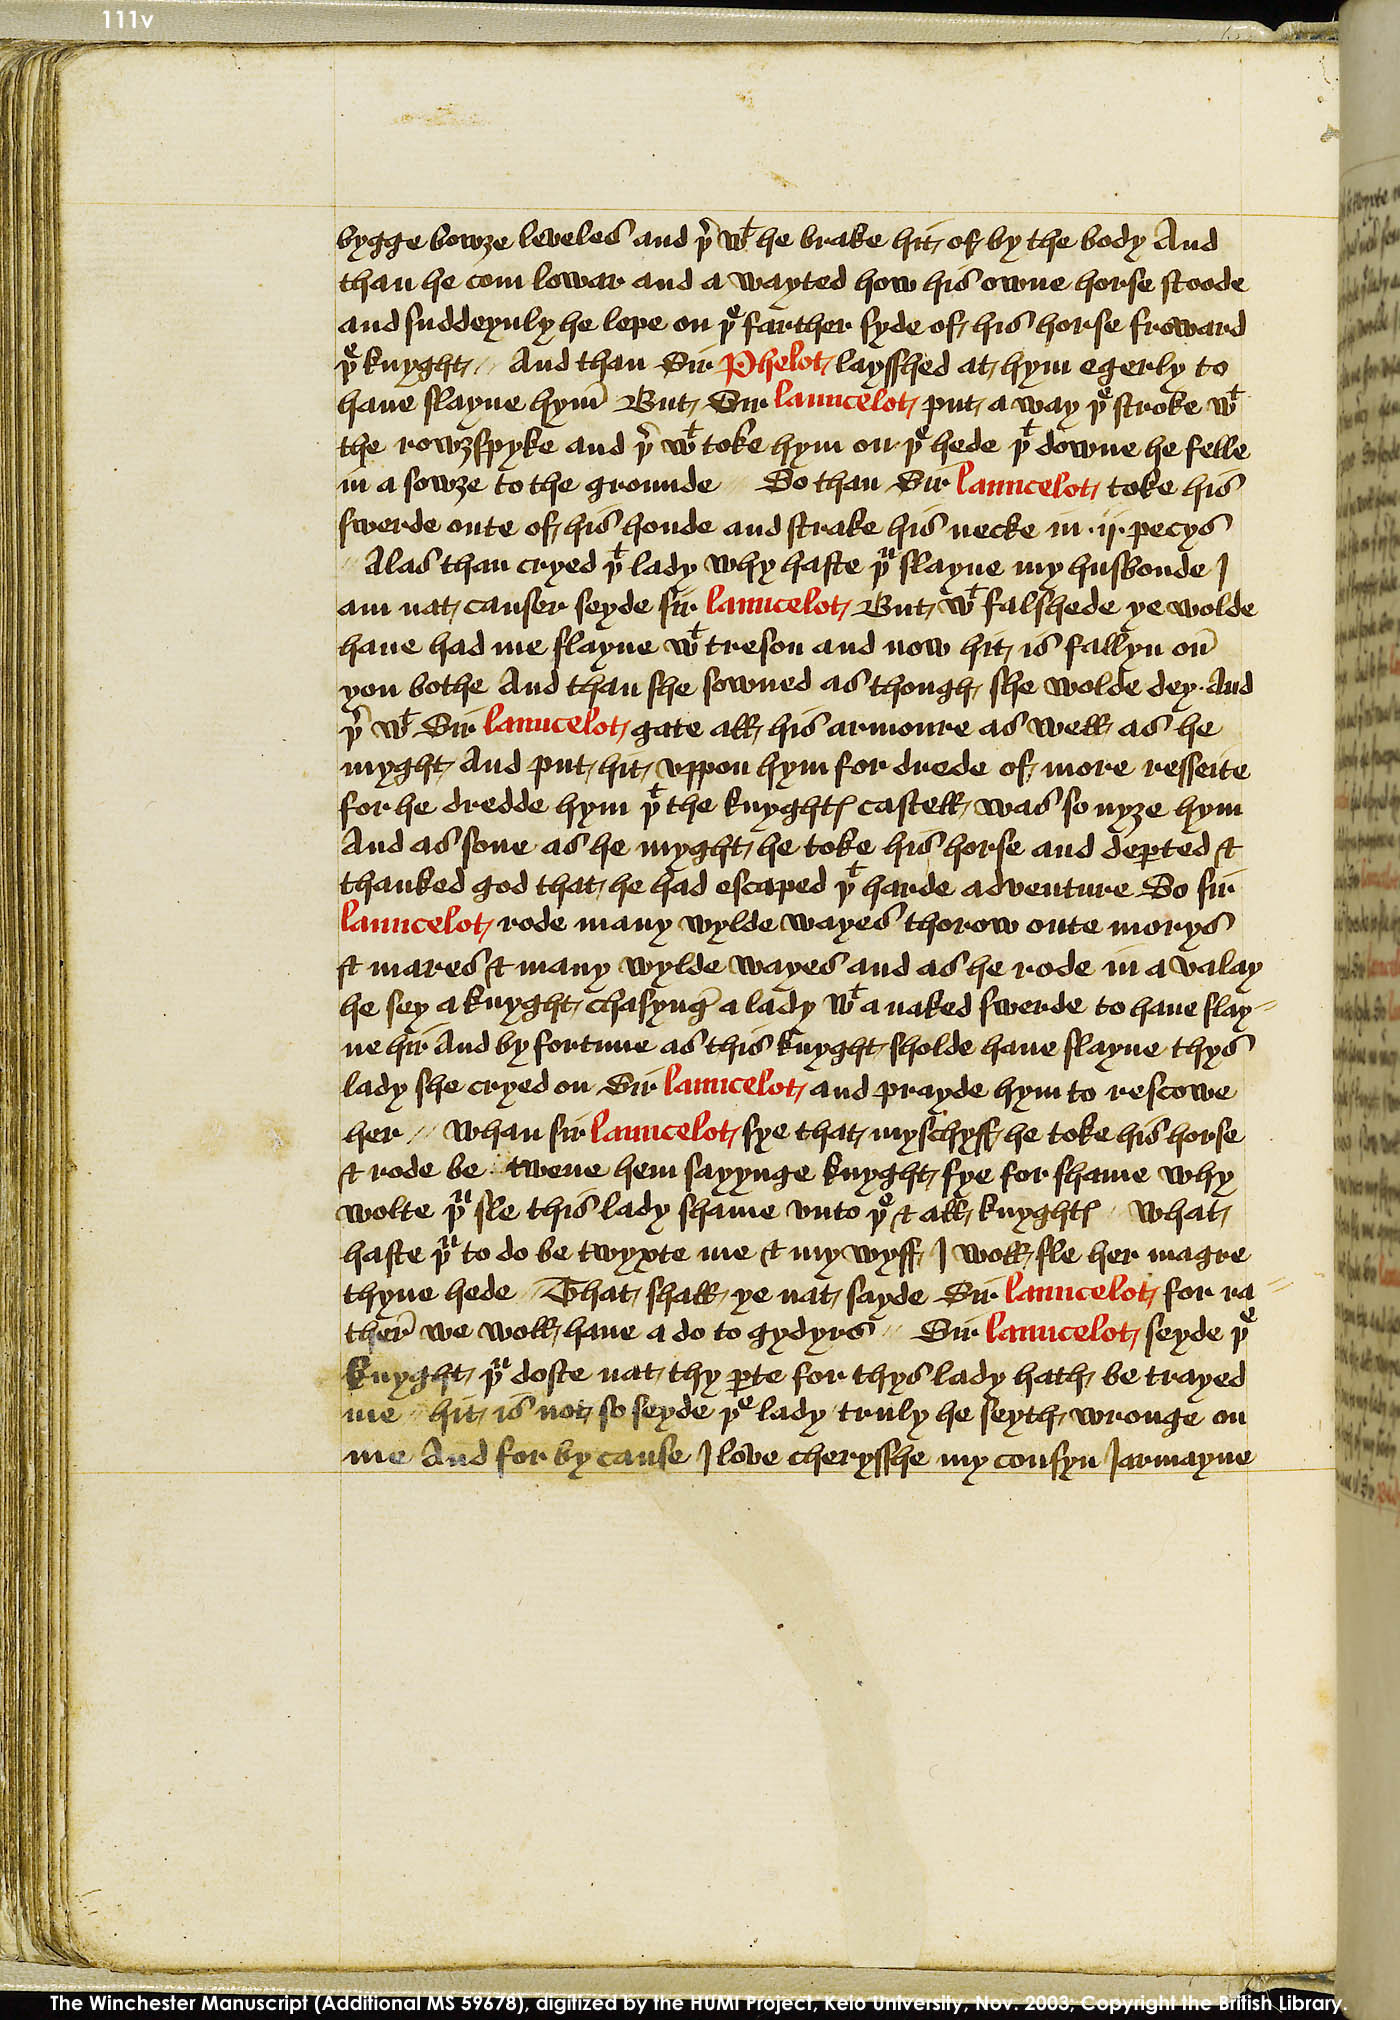 111v
bygge bowze leveles and þʳ wᵗ he brake hit of by the body And
than he com lowar and a wayted how his owne horse stoode
and suddeynly he lepe on þᵉ farther syde of his horse froward
þᵉ knyght // And than Sir Phelot laysshed at hym egerly to
haue slayne hym̄ But Sir launcelot put a way þᵉ stroke wᵗ
the rowzspyke and þʳ wᵗ toke hym on þᵉ hede þᵗ downe he felle
in a sowze to the grounde // So than Sir launcelot toke his
swerde oute of his honde and strake his necke in .ij. pecys
// Alas than cryed þᵗ lady why haste þᵘ slayne my husbonde I
am nat causer seyde sir launcelot But wᵗ falshede ye wolde
haue had me slayne wᵗ treson and now hit is fallyn on̄
you bothe And than she sowned as though she wolde dey. And
þʳ wᵗ Sir launcelot gate all his armoure as well as he
myght And put hit vppon hym for drede of more resseite
for he dredde hym þᵗ the knyghtꝭ castell was so nyze hym
And as sone as he myght he toke his horse and deꝑted &
thanked god that he had escaped þᵗ harde adventure So sir
launcelot rode many wylde wayes thorow oute morys
& mares & many wylde wayes and as he rode in a valay
he sey a knyght chasyng a lady wᵗ a naked swerde to haue slay=
ne hir And by fortune as this knyght sholde haue slayne thys
lady she cryed on Sir launcelot and prayde hym to rescowe
her // Whan sir launcelot sye that myschyff he toke his horse
& rode be twene hem sayynge knyght fye for shame why
wolte þᵘ sle this lady shame vnto þᵉ & all knyghtꝭ // What
haste þᵘ to do be twyxte me & my wyff I woll sle her magre
thyne hede // That shall ye nat sayde Sir launcelot for ra=
ther̄ we woll haue a do to gydyrs // Sir launcelot seyde þᵉ
knyght þᵘ doste nat thy ꝑte for thys lady hath be trayed
me // hit is not so seyde þᵉ lady truly he seyth wronge on
me And for by cause I love cherysshe my cousyn Iarmayne
The Winchester Manuscript (Additional MS 59678), digitized by the HUMI Project, Keio University, Nov. 2003; Copyright the British Library.